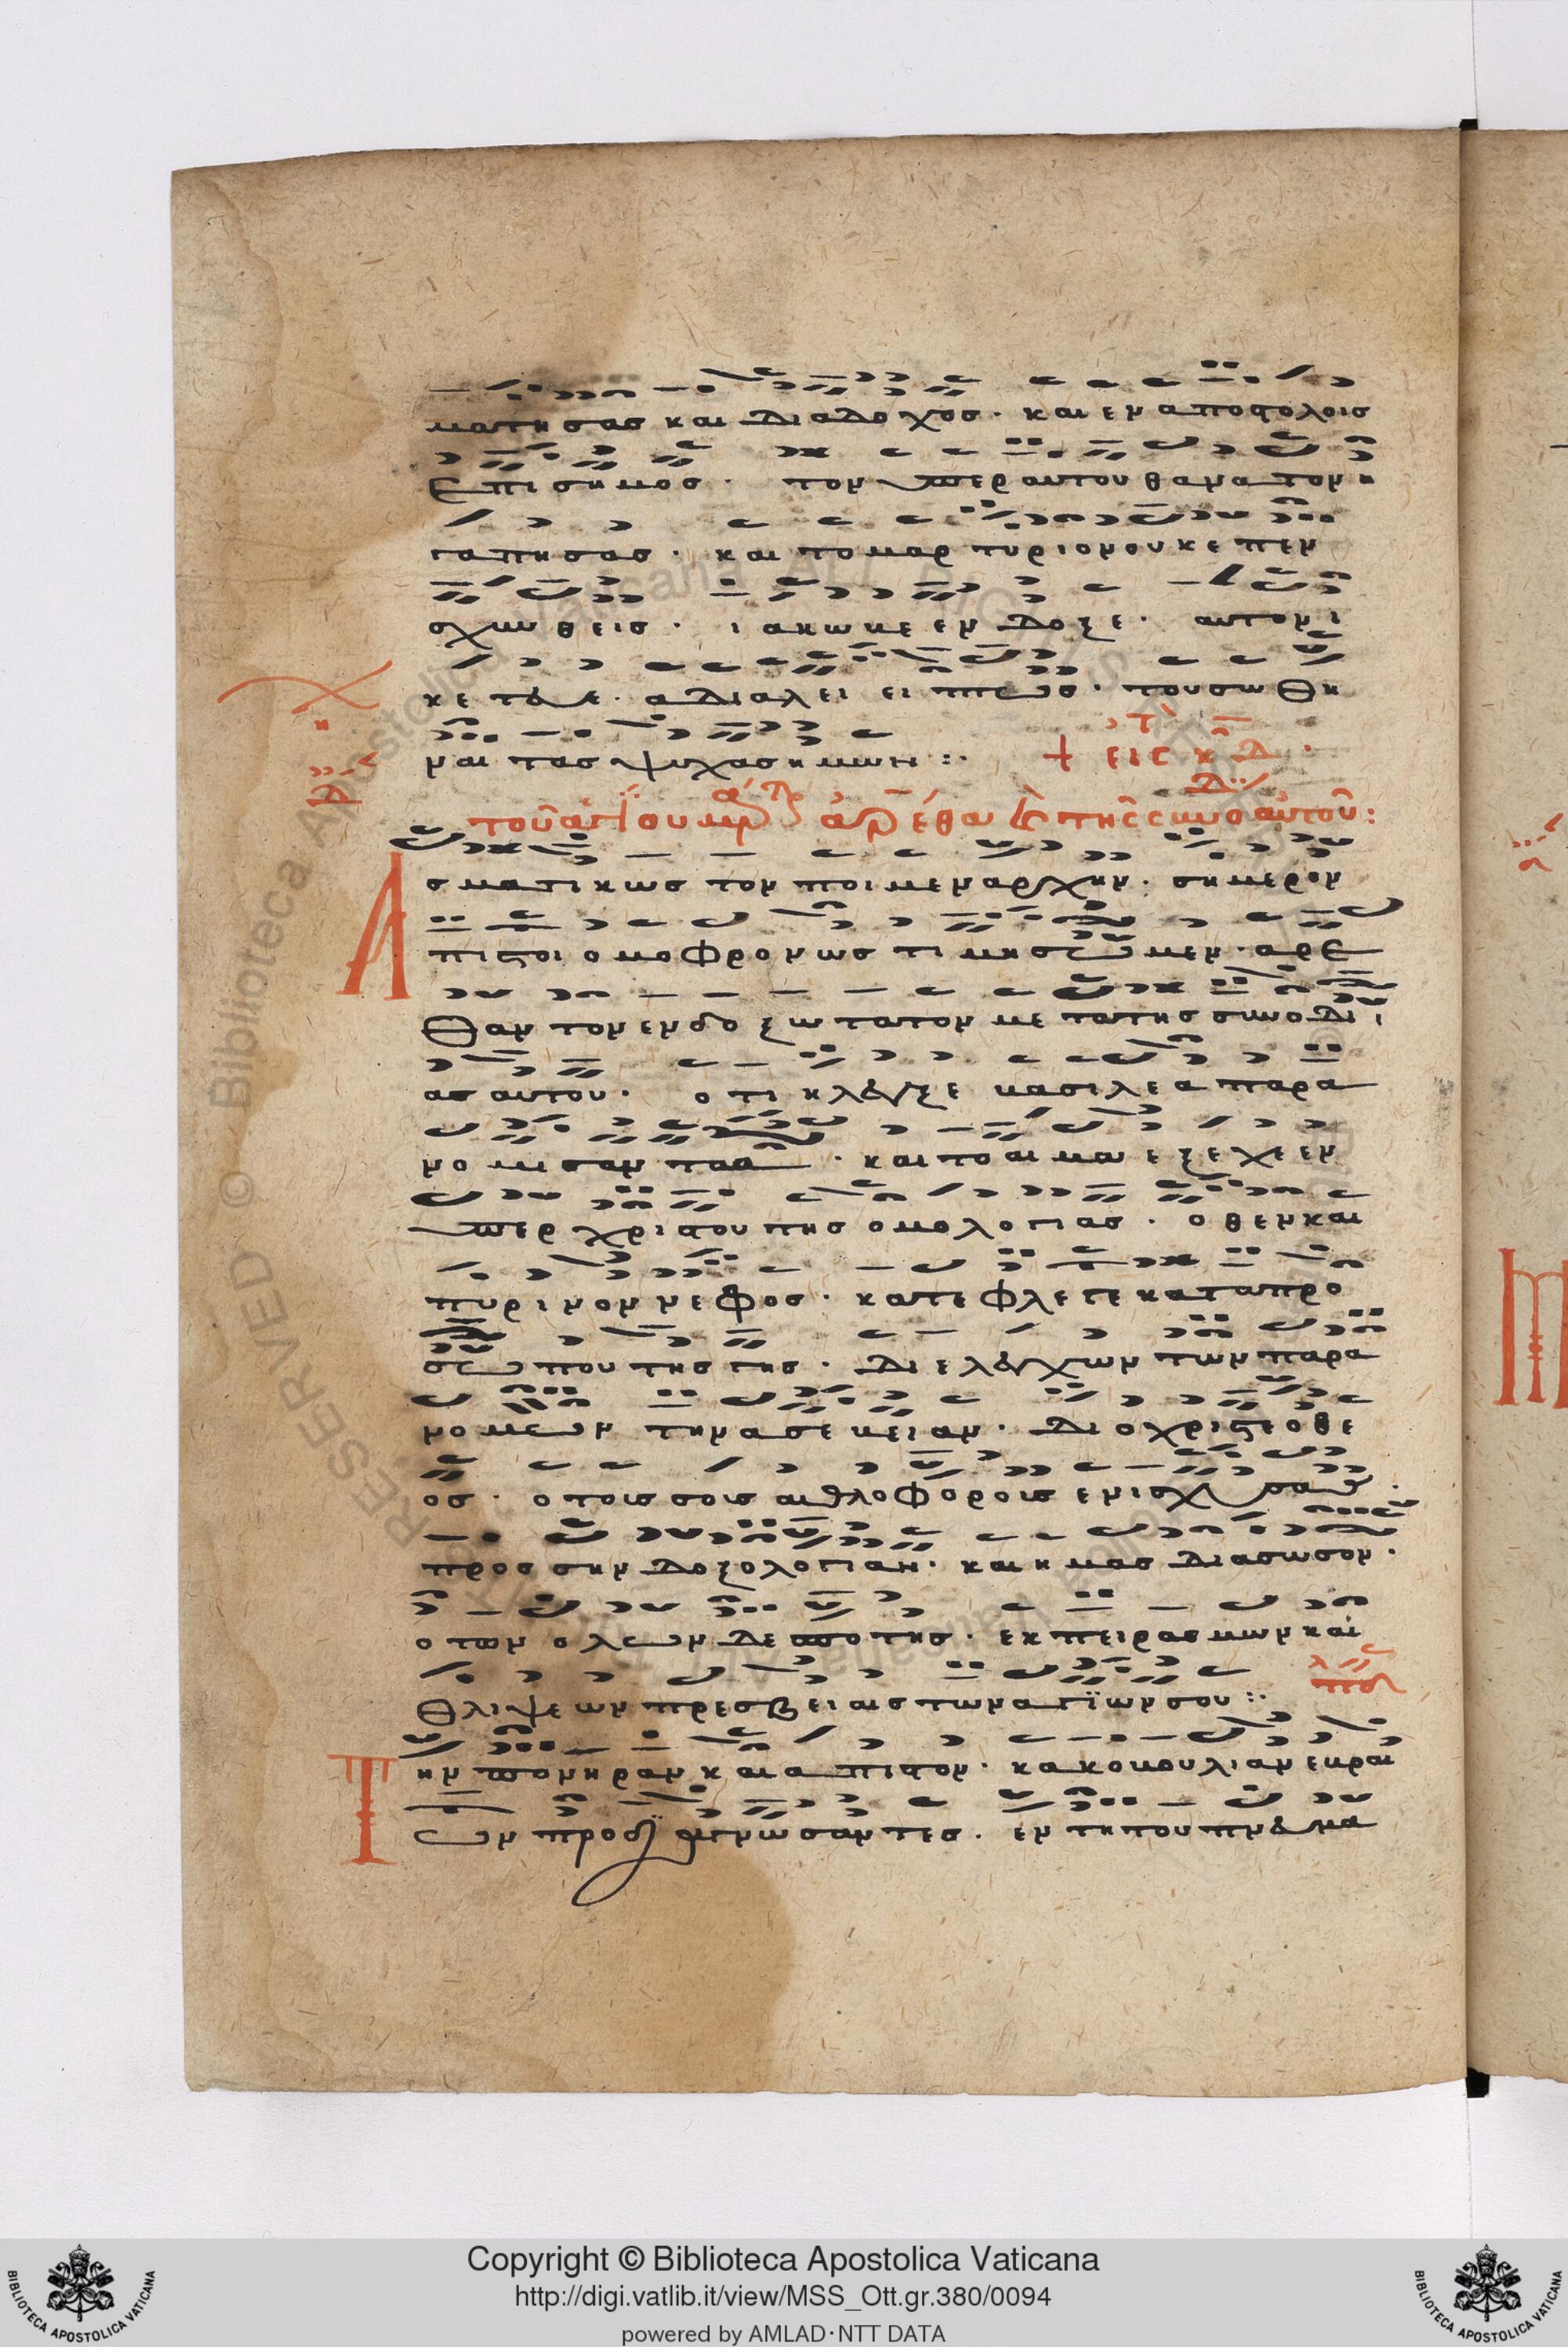 ματη σας και διαδο χος · και εν αποστολοις
επι σημος · τον υπερ αυτου θανατον η
γαπησας · και το μαρ τυριον ουκ επεν
σχυν θεις · ι ακωβε εν δοξε · αυτον ι
κε τευε · α διαλει ει πτως · του σωθη
ναι τας ψυχας ημων :·
+ εις κδ
του αγιου μρ αρεθα κ της συνο αυτου :
Α σματικως τον ποιμεναρχην · σημερον
πιστοι ομοφρονως τι μησωμεν · αρε
θαν τον ενδο ξω τατον με τα της συνοδι
ας αυτου · οτι ηλεγξε βασιλεα παρα
νο μησαν τα · και το αι μα εξεχεεν
υπερ χριστου της ομολογιας · οθεν και
πυρινον νεφος · κατεφλεγε κατα προ
σωπου της γης · διελεγχων των παρα
νομων την ασεβειαν · διο χριστε ο θε
ος · ο τοις σοις αθλοφοροις ενισχυσας ·
προς σην δοξολογιαν · και ημας διασωσον ·
ο των ολων δεσποτης · εκ πειρασμων και
θλιψεων πρεσβειαις των αγϊων σου :·
Τ ην πονηραν και απιστον · κακοβουλιαν εβραι
ων προδϊαγνωσαντες · εν τη του πνευμα
Copyright © Biblioteca Apostolica Vaticana
http://digi.vatlib.it/view/MSS_Ott.gr.380/0094
powered by AMLAD·NTT DATA
BIBLIOTECA APOSTOLICA VATICANA
BIBLIOTECA APOSTOLICA VATICANA